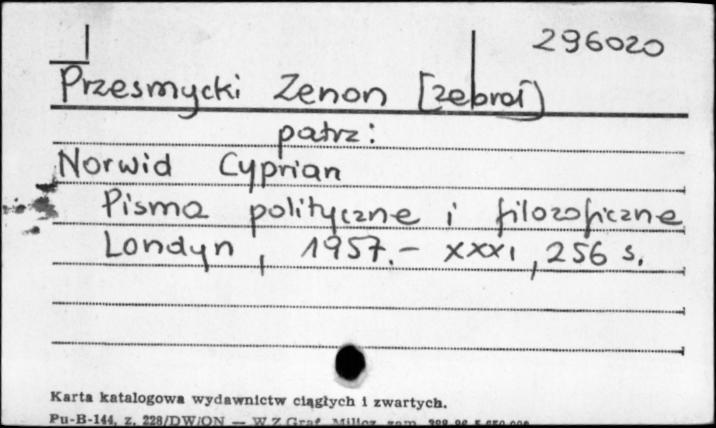 296020
Przesmycki Zenon [zebrał]
patrz:
Norwid Cyprian
Pisma polityczne i filozoficzne
Londyn, 1957.- XXXI, 256 s.
Karta katalogowa wydawnictw ciągłych i zwartych.
Pu-B-144, z. 228/DW/ON — W.Z.Graf. Milicz, zam.